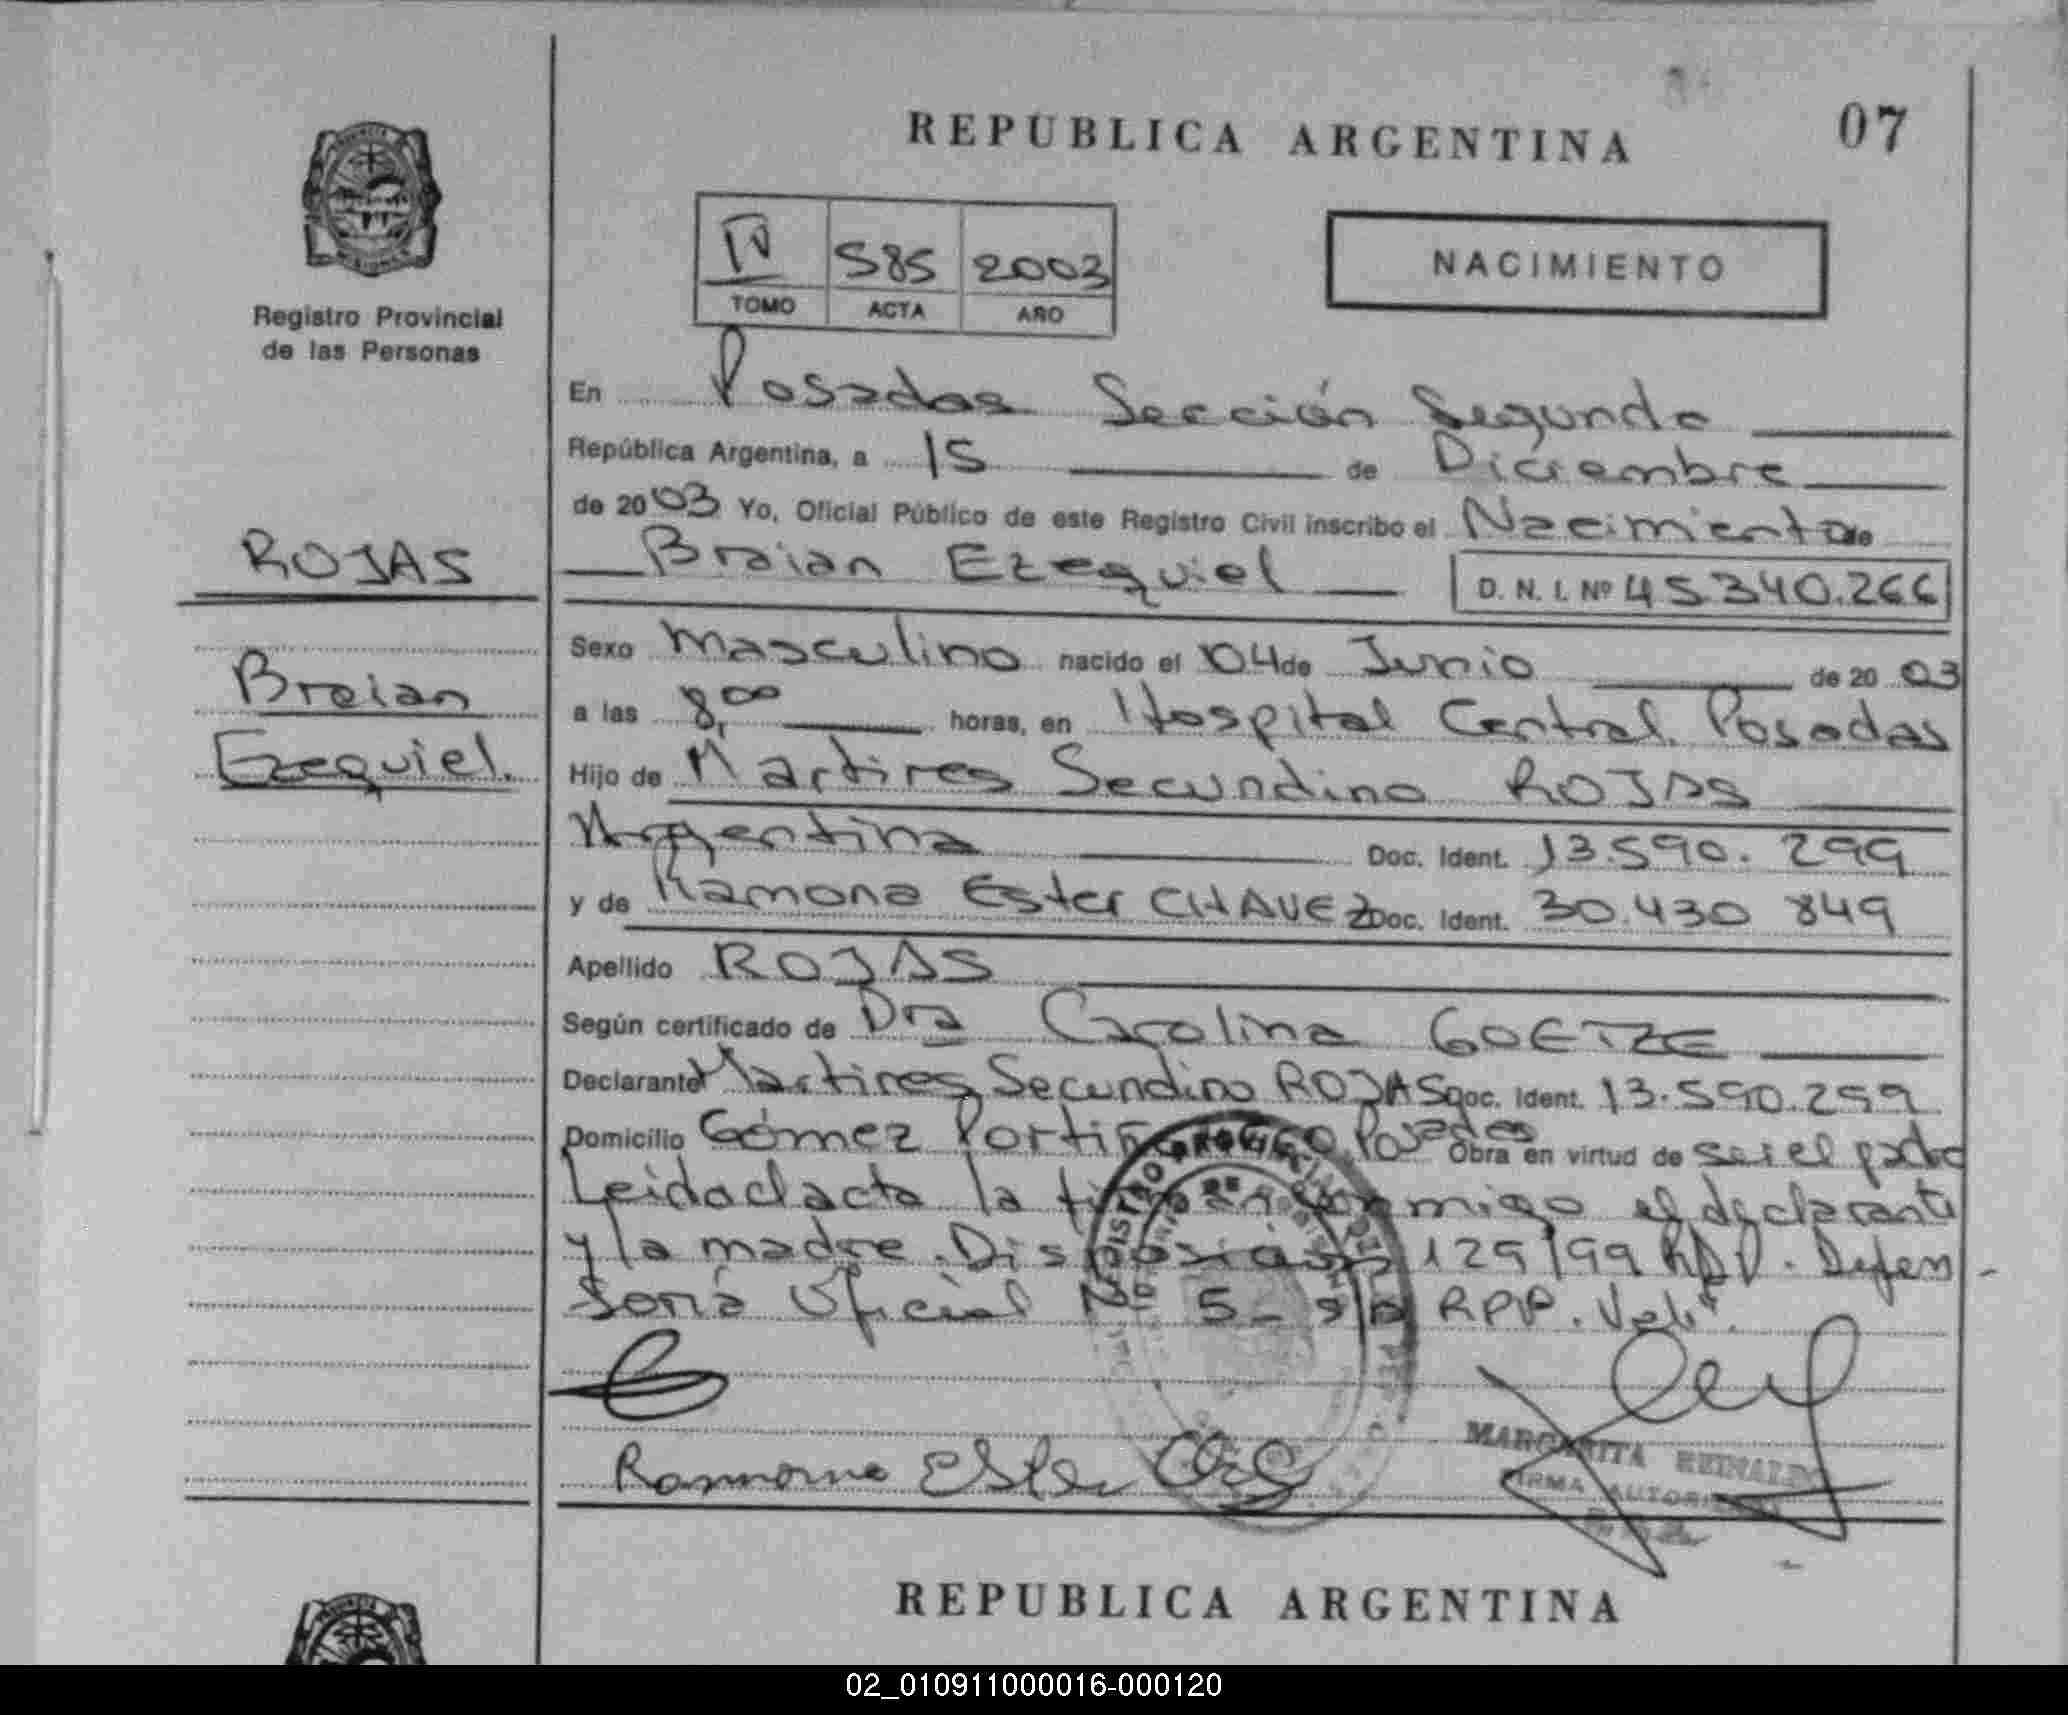 REPUBLICA ARGENTINA
07
Registro Provincial
de las Personas
IV 585 2003
TOMO ACTA AÑO
NACIMIENTO
En Posadas Sección Segunda
República Argentina, a 15 de Diciembre
de 2003 Yo, Oficial Público de este Registro Civil inscribo el Nacimiento de
Braian Ezequiel D. N. I. Nº 45.340.266
ROJAS
Braian
Ezequiel.
Sexo Masculino nacido el 04 de Junio de 2003
a las 8,00 horas, en Hospital Central. Posadas
Hijo de Martires Secundino ROJAS
Argentina Doc. Ident. 13.590.299
y de Ramona Ester CHAVEZ Doc. Ident. 30.430 849
Apellido ROJAS
Según certificado de Dra Carolina GOETZE
Declarante Martires Secundino ROJAS Doc. Ident. 13.590.299
Domicilio Gómez Posadas Obra en virtud de ser el padre
Leida el acta la conmigo el declarante
y la madre. Disposición 129/99 RPP. Defen-
soria Oficial Nº 5 - RPP.
Ramona Ester
MARGARITA
FIRMA
REPUBLICA ARGENTINA
02_010911000016-000120